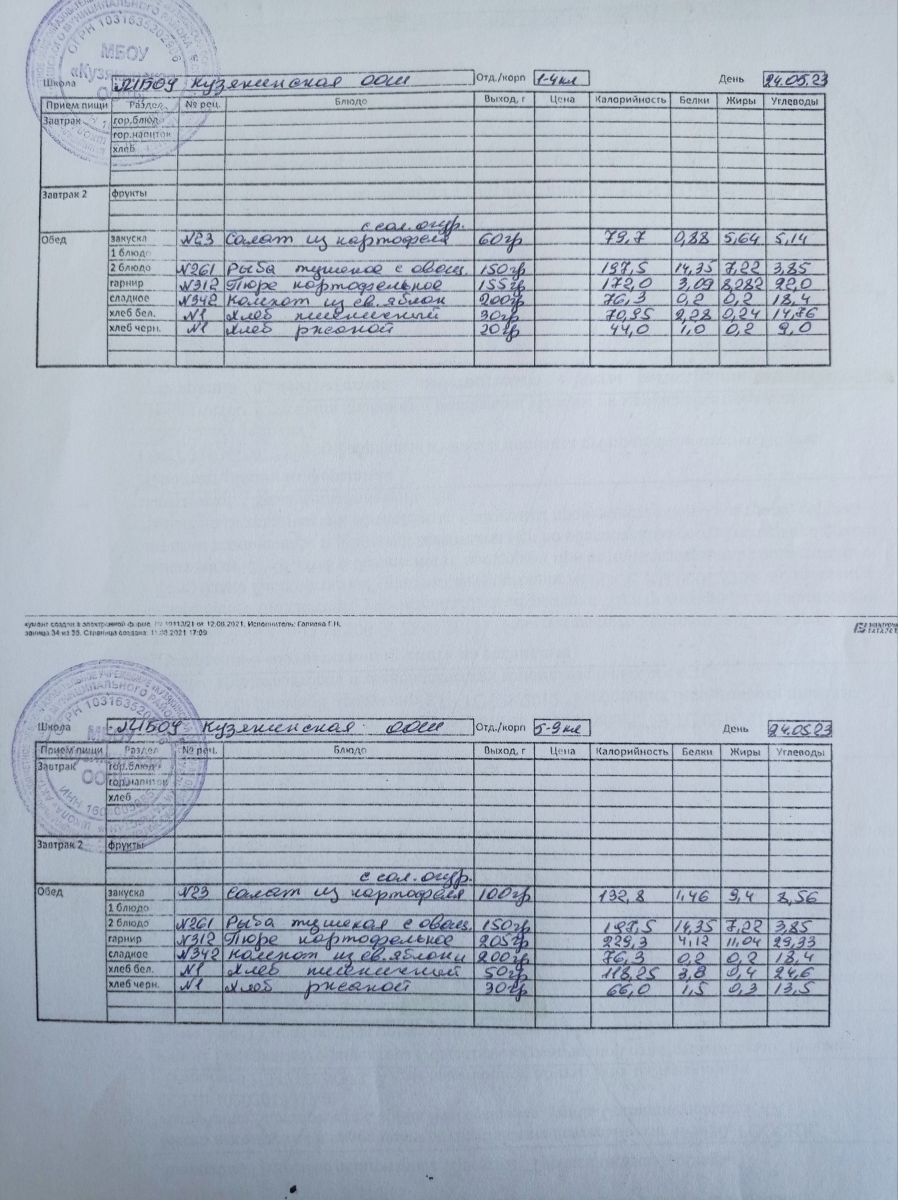 МБОУ
Школа МБОУ Кузякинская ООШ Отд./корп 1-4кл День 24.05.23
Прием пищи Раздел № рец. Блюдо Выход, г Цена Калорийность Белки Жиры Углеводы
Завтрак гор.блюдо
гор.напиток
хлеб
Завтрак 2 фрукты
с сол. огур.
Обед закуска №23 Салат из картофеля 60гр 79,7 0,88 5,64 5,14
1 блюдо
2 блюдо №261 Рыба тушеное с овощ. 150гр 197,5 14,35 7,22 3,85
гарнир №312 Пюре картофельное 155гр 172,0 3,09 8,282 22,0
сладкое №342 Компот из св. яблок 200гр 76,3 0,2 0,2 18,4
хлеб бел. №1 Хлеб пшеничный 30гр 70,95 2,28 0,24 14,76
хлеб черн. №1 Хлеб ржаной 20гр 44,0 1,0 0,2 9,0
кумент создан в электронной форме. № 10113/21 от 12.08.2021. Исполнитель:
аница 34 из 35. Страница создана: 11.08.2021 17:09
Школа МБОУ Кузякинская ООШ Отд./корп 5-9кл День 24.05.23
Прием пищи Раздел № рец. Блюдо Выход, г Цена Калорийность Белки Жиры Углеводы
Завтрак гор.блюдо
гор.напиток
хлеб
Завтрак 2 фрукты
с сол. огур.
Обед закуска №23 Салат из картофеля 100гр 132,8 1,46 9,4 8,56
1 блюдо
2 блюдо №261 Рыба тушеная с овощ. 150гр 197,5 14,35 7,22 3,85
гарнир №312 Пюре картофельное 205гр 229,3 4,12 11,04 29,33
сладкое №342 Компот из св. яблоки 200гр 76,3 0,2 0,2 18,4
хлеб бел. №1 Хлеб пшеничный 50гр 118,25 3,8 0,4 24,6
хлеб черн. №1 Хлеб ржаной 30гр 66,0 1,5 0,3 13,5